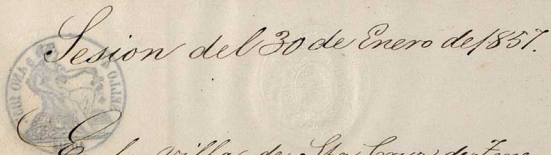 Sesion del 30 de Enero de 1857.
villa de Sta Cruz de Tene